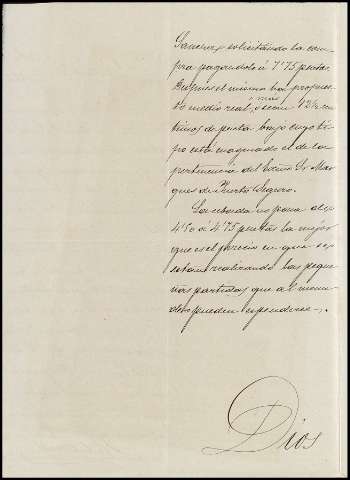 Sanchez solicitando la com-
pra pagandolo á 7'75 pesetas
Despues el mismo ha propues-
to medio real más, ó sean 12½ cén-
timos de peseta bajo cuyo ti-
po esta el de los
pertenencia del Excmo Sr Mar-
qués de Puerto Seguro.
La cebada no pasa de
4'50 á 4'75 pesetas la mejor
que es el precio en que se
estan realizando las peque-
ñas partidas que al menu-
deo pueden expenderse.
Dios